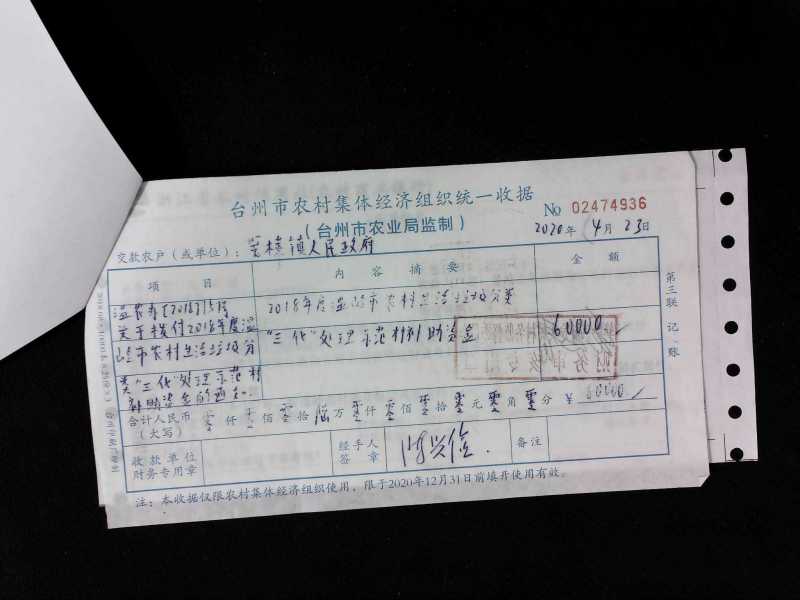 台州市农村集体经济组织统一收据
（台州市农业局监制）
No 02474936
2020年 4月 23日
交款农户（或单位）： 镇人民政府
项 目 内 容 摘 要 金 额
温农办[2018]15号
关于拨付2018年度温
岭市农村生活垃圾分
类"三化"处理示范村
补助资金的通知.
2018年度温岭市农村生活垃圾分类
"三化"处理示范村补助资金
60000
合计人民币
（大写）
零仟 零佰 零拾 陆万 零仟 零佰 零拾 零元 零角 零分 ¥ 60000
收款单位
财务专用章
经手人
签 章
备注
注：本收据仅限农村集体经济组织使用，限于2020年12月31日前填开使用有效。
第三联 记账